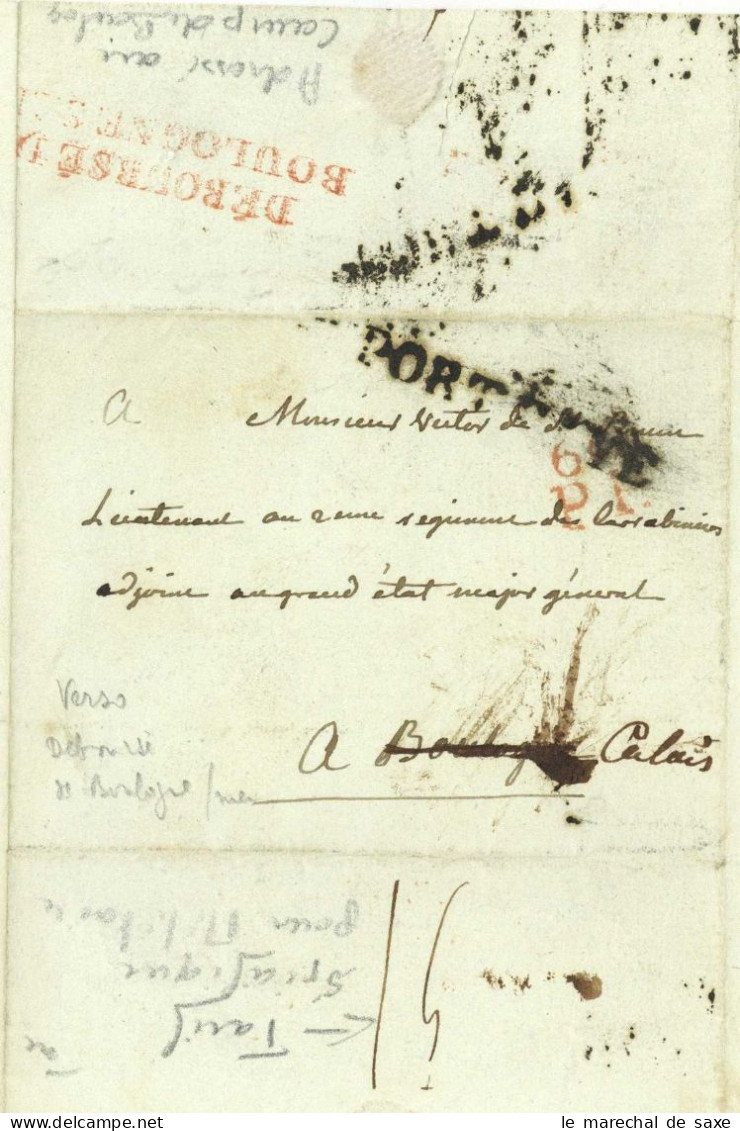 Adressé au
Camp de Boulog
DÉBOURSÉ D
BOULOGNE S
PORT PAYÉ
A Monsieur Victor de St
61
P. P.
Lieutenant au 2eme regiment des Carrabiniers
adjoint au grand état major général
Verso
Deboursé
de Boulogne /mer
A Boulogne Calais
15
← Tarif
Spécifique
pour Militaire
le marechal de saxe